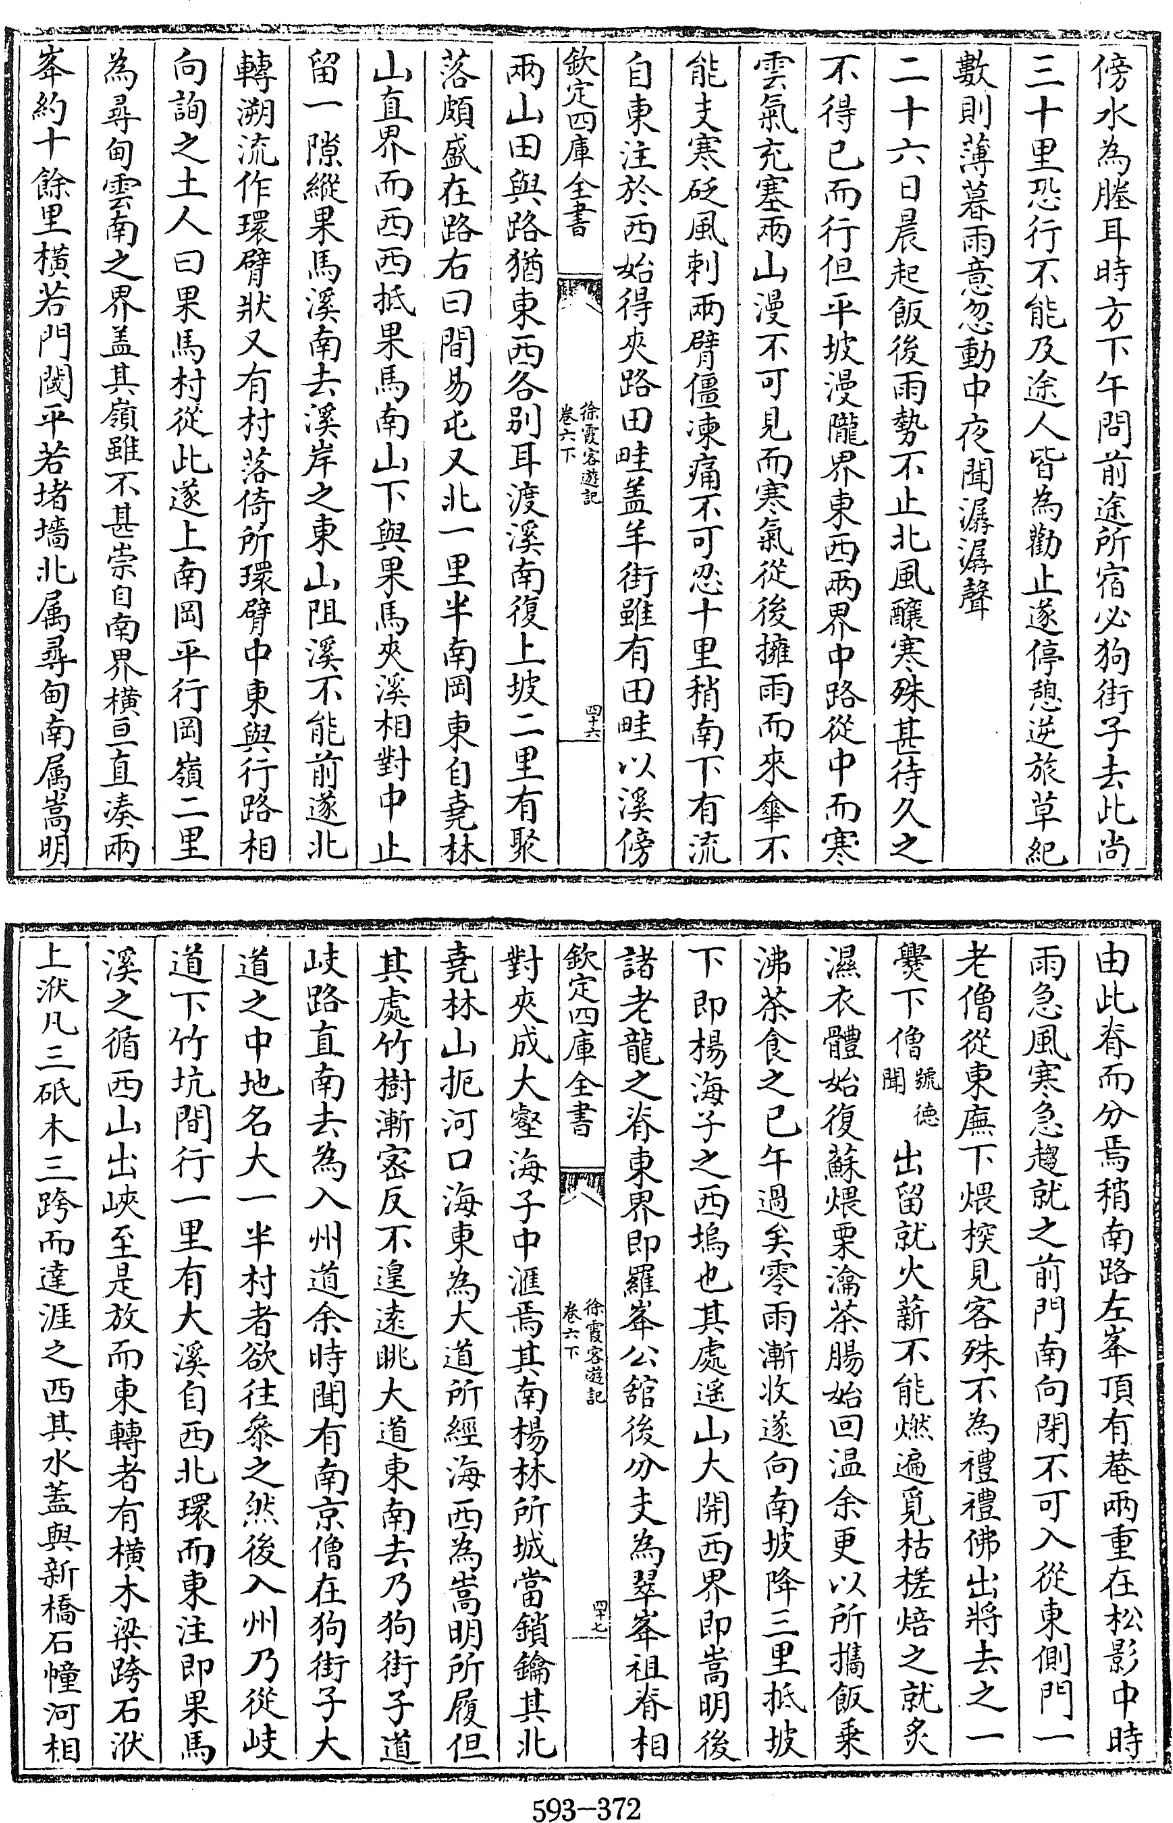 傍水為塍耳時方下午問前途所宿必狗街子去此尚
三十里恐行不能及途人皆為勸止遂停憩逆旅草紀
數則薄暮雨意忽動中夜聞潺潺聲
二十六日晨起飯後雨勢不止北風釀寒殊甚待久之
不得已而行但平坡漫隴界東西兩界中路從中而寒
雲氣充塞兩山漫不可見而寒氣從後擁雨而來傘不
能支寒砭風刺兩臂僵凍痛不可忍十里稍南下有流
自東注於西始得夾路田畦盖羊街雖有田畦以溪傍
欽定四庫全書
徐霞客遊記
卷六下
四十六
兩山田與路猶東西各別耳渡溪南復上坡二里有聚
落頗盛在路右曰間易屯又北一里半南岡東自堯林
山直界而西西抵果馬南山下與果馬夾溪相對中止
留一隙縱果馬溪南去溪岸之東山阻溪不能前遂北
轉溯流作環臂狀又有村落倚所環臂中東與行路相
向詢之土人曰果馬村從此遂上南岡平行岡嶺二里
為尋甸雲南之界盖其嶺雖不甚崇自南界橫亘直湊兩
峯約十餘里橫若門閾平若堵墻北属尋甸南属嵩明
由此脊而分焉稍南路左峯頂有菴兩重在松影中時
雨急風寒急趨就之前門南向閉不可入從東側門一
老僧從東廡下煨榾見客殊不為禮禮佛出將去之一
爨下僧號德聞出留就火薪不能燃遍覓枯槎焙之就炙
濕衣體始復蘇煨栗瀹茶腸始回温余更以所攜飯乗
沸茶食之已午過矣零雨漸收遂向南坡降三里抵坡
下即楊海子之西塢也其處遥山大開西界即嵩明後
諸老龍之脊東界即羅峯公舘後分支為翠峯祖脊相
欽定四庫全書
徐霞客遊記
卷六下
四十七
對夾成大壑海子中滙焉其南楊林所城當鎖鑰其北
堯林山扼河口海東為大道所經海西為嵩明所履但
其處竹樹漸密反不遑遠眺大道東南去乃狗街子道
岐路直南去為入州道余時聞有南京僧在狗街子大
道之中地名大一半村者欲往叅之然後入州乃從岐
道下竹坑間行一里有大溪自西北環而東注即果馬
溪之循西山出峽至是放而東轉者有橫木梁跨石洑
上洑凡三砥木三跨而達涯之西其水蓋與新橋石幢河相
593-372